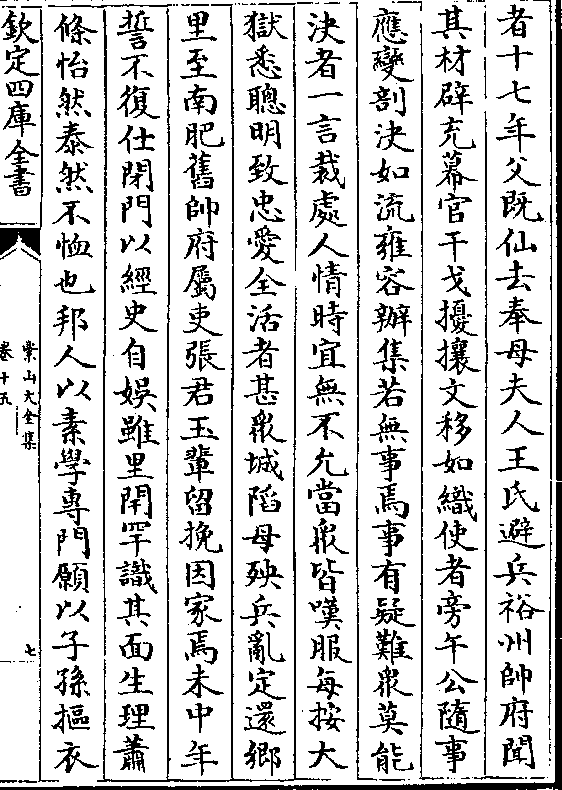 者十七年父既仙去奉母夫人王氏避兵裕州帥府聞
其材辟充幕官干戈擾攘文移如織使者旁午公隨事
應變剖決如流雍容辦集若無事焉事有疑難衆莫能
決者一言裁處人情時宜無不允當衆皆嘆服每按大
獄悉聰明致忠愛全活者甚衆城陷母殃兵亂定還鄉
里至南肥舊帥府屬吏張君玉輩留挽因家焉未中年
誓不復仕閉門以經史自娛雖里閈罕識其面生理蕭
條怡然泰然不恤也邦人以素學專門願以子孫摳衣
欽定四庫全書
紫山大全集
卷十五
七